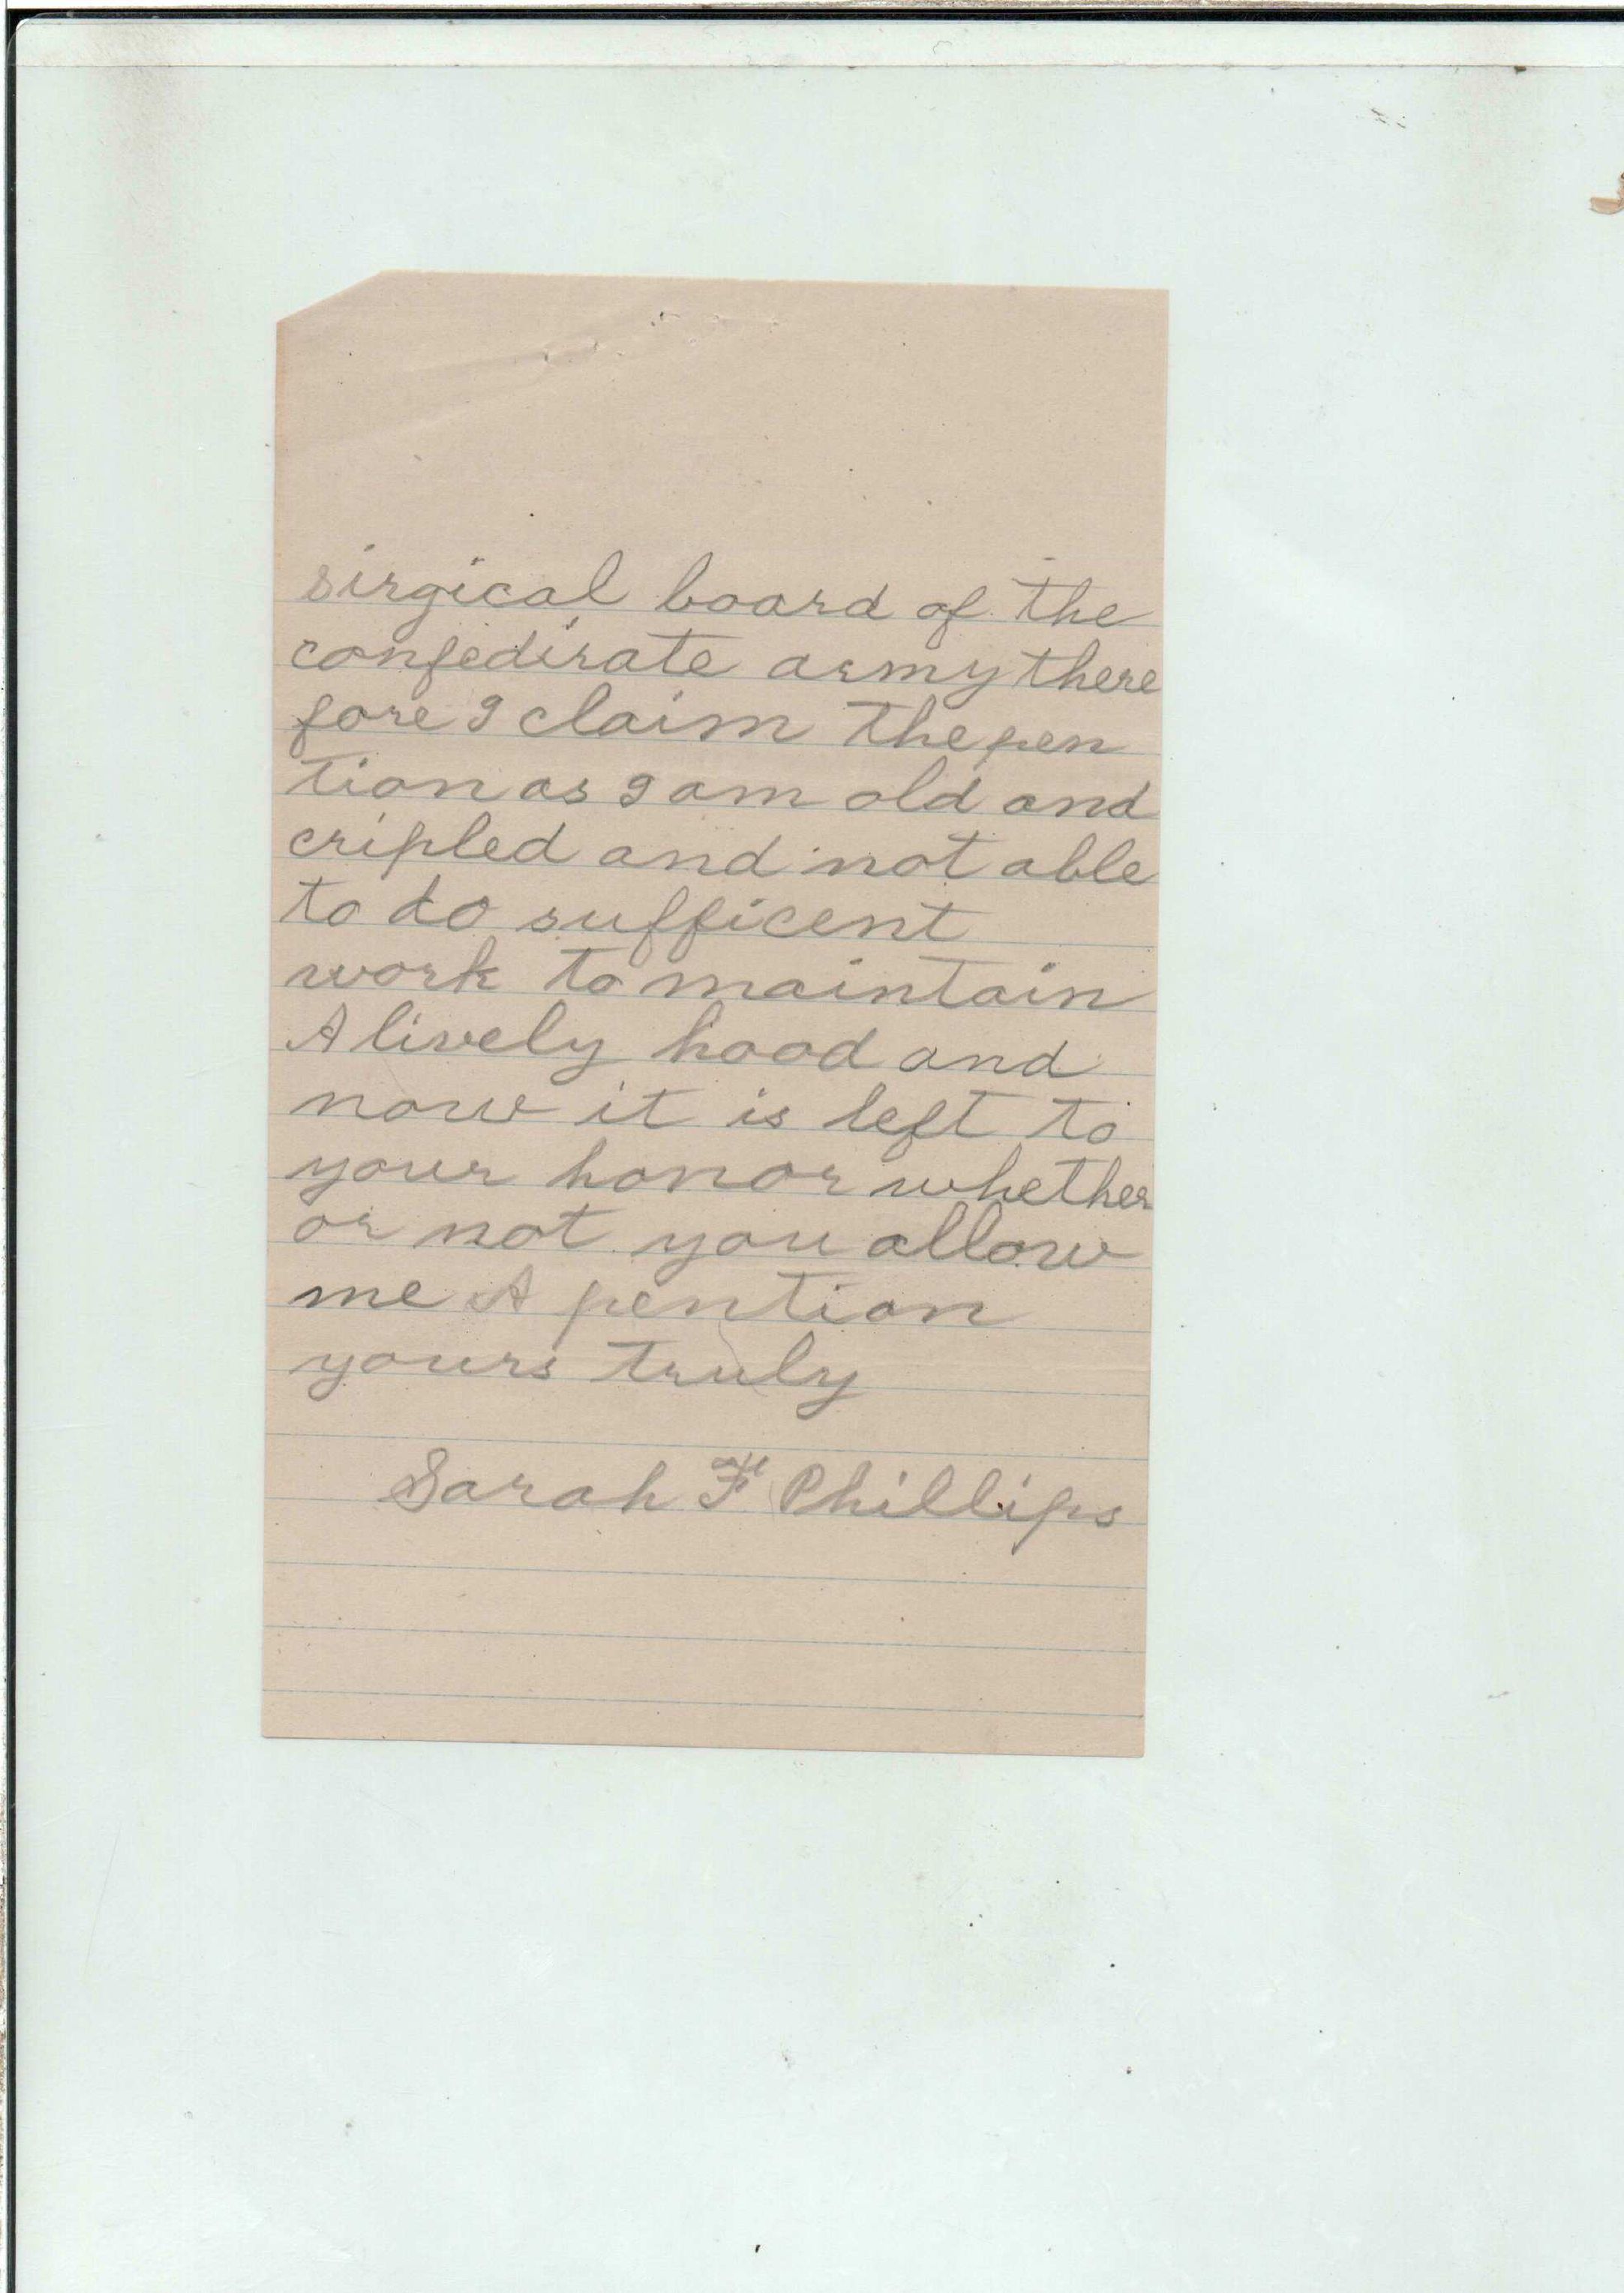 sirgical board of the
confedirate army there
fore I claim the pen
tion as I am old and
cripled and not able
to do sufficent
work to maintain
A lively hood and
now it is left to
your honor whether
or not you allow
me A pention
yours truly
Sarah F Phillips